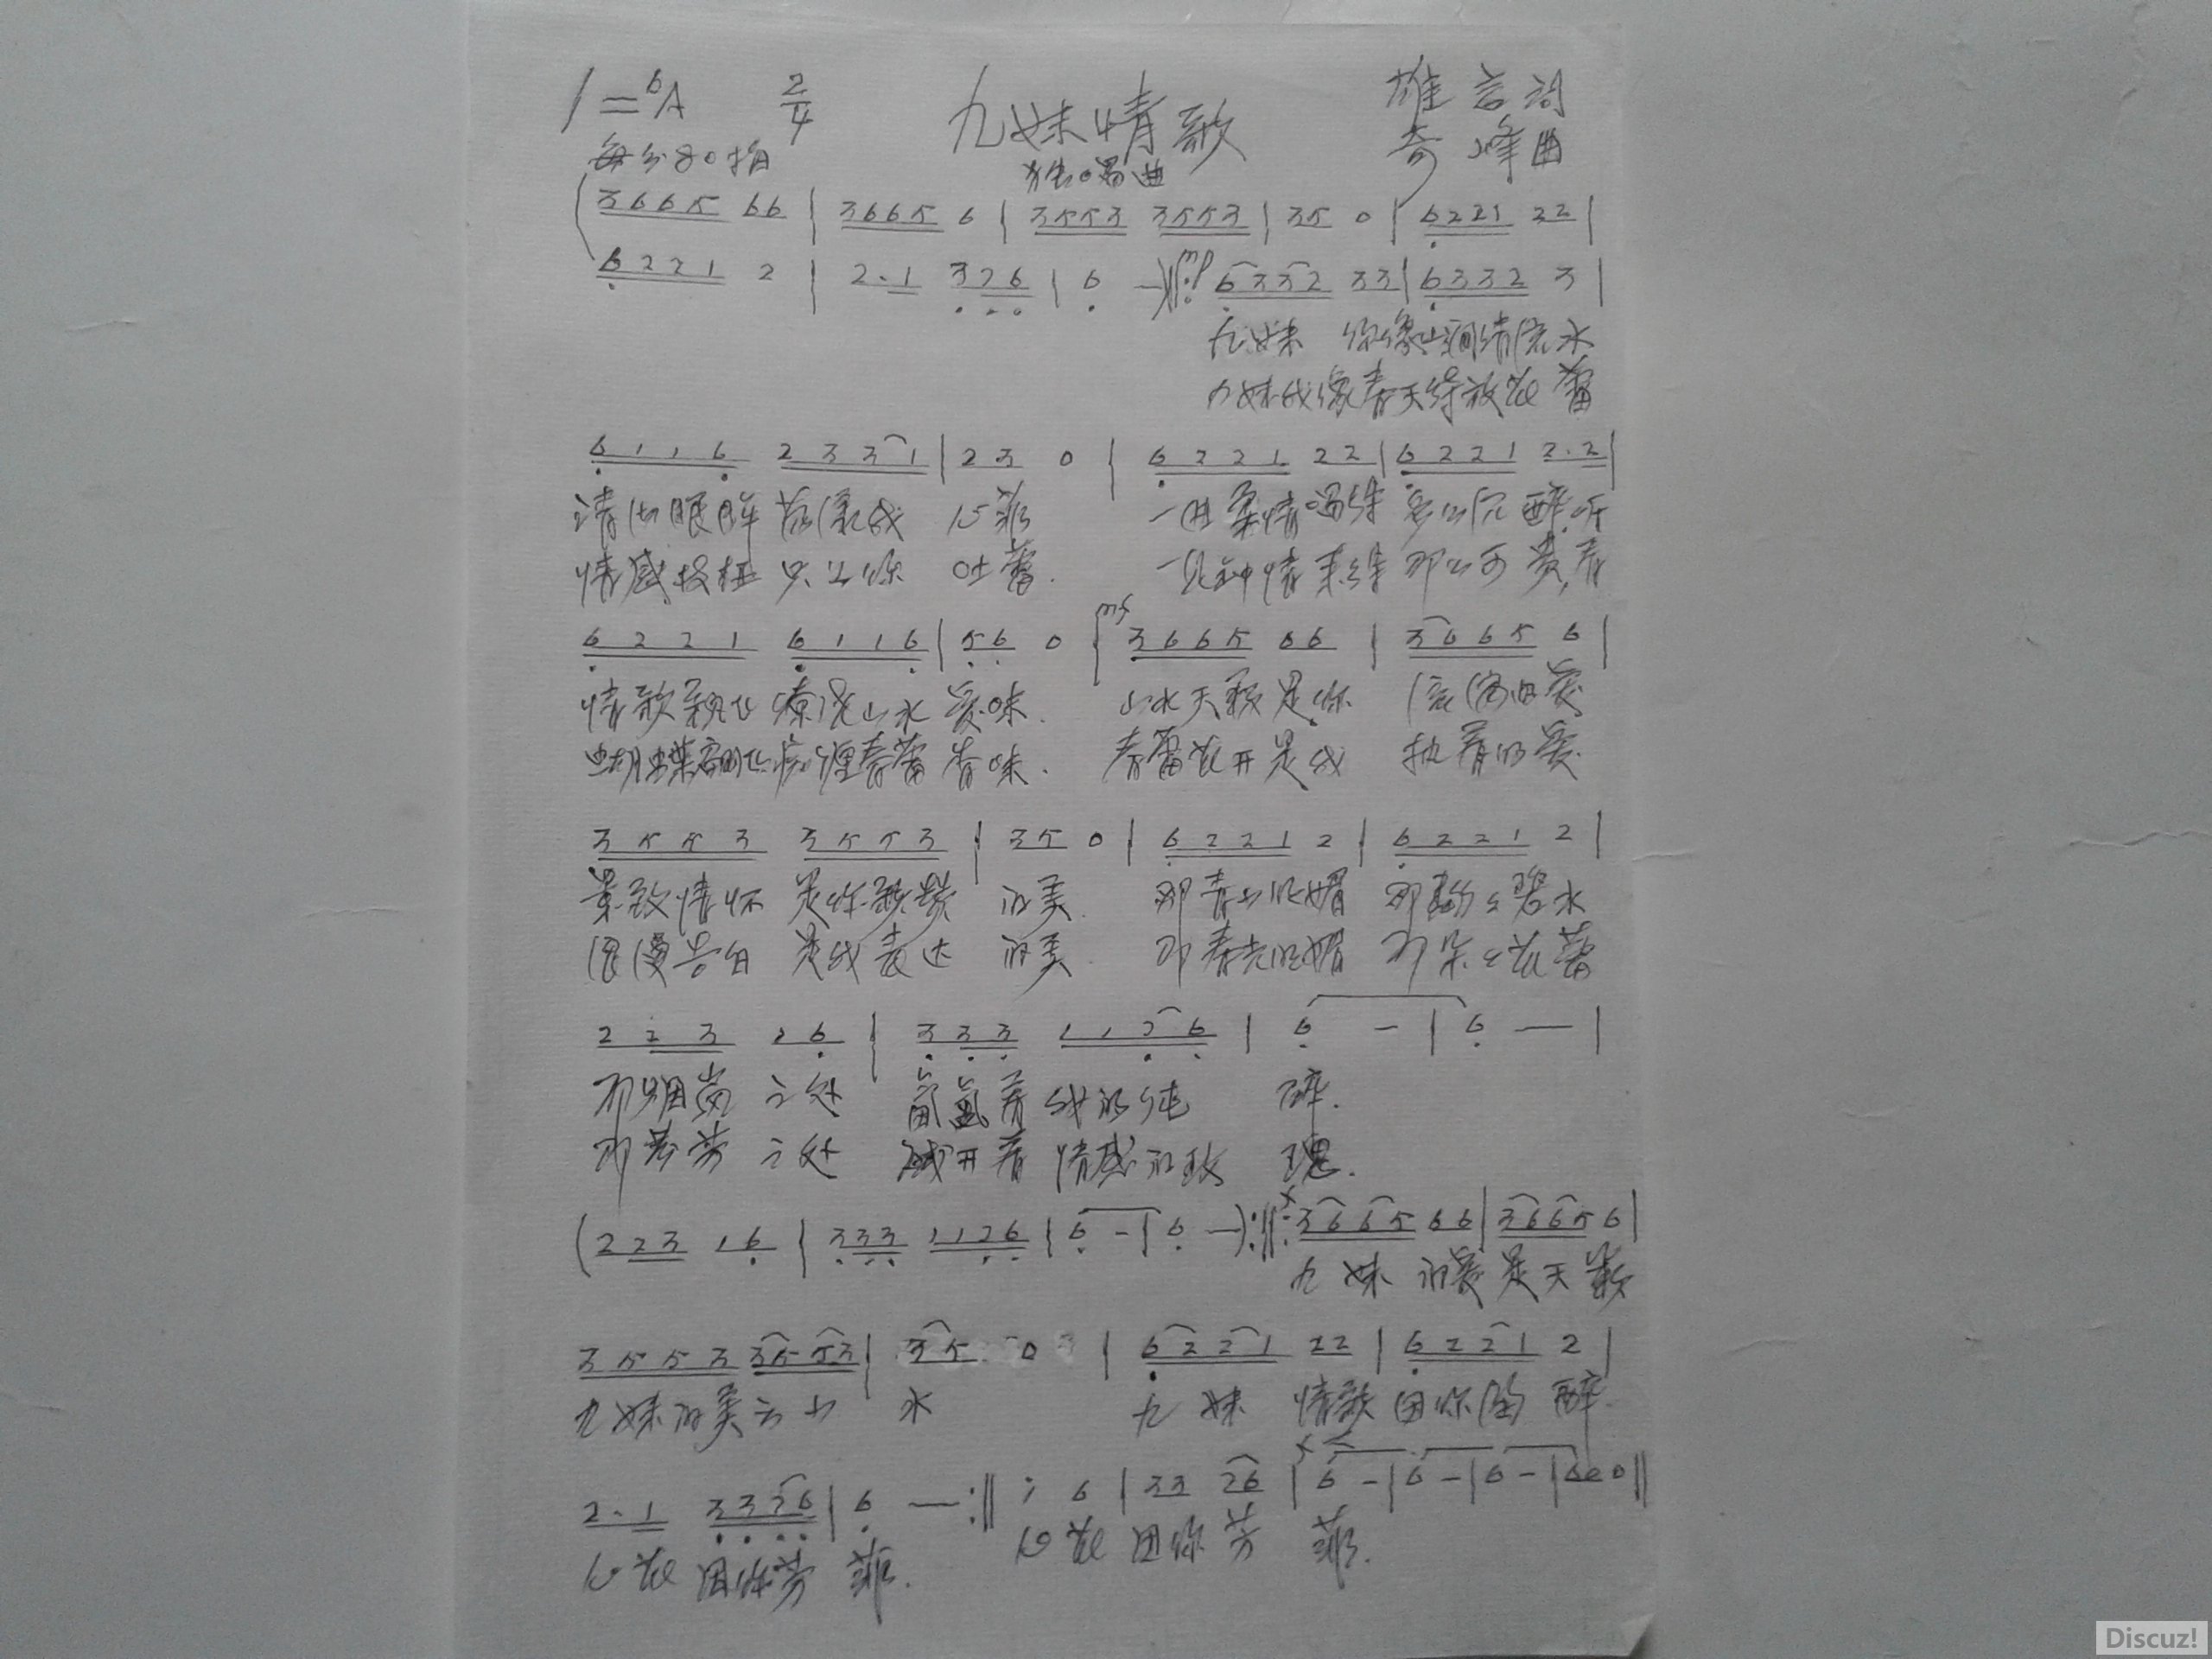 1=♭A 2/4 九妹情歌 雄言词
每分80拍 独唱曲 奇峰曲
(3665 66 | 3665 6 | 3553 3553 | 35 0 | 6221 22 |
6221 2 | 2·1 376 | 6 —)‖: mp 6332 33 | 6332 3 |
九妹 你像山涧清流水
九妹我像春天绽放花蕾
6116 2331 | 23 0 | 6221 22 | 6221 2·2 |
清如眼眸 我心菲
情感枝桠 只为你 吐蕾.
一曲柔情唱绎 多么沉醉,听
一见钟情来绎 那么可贵,看
6221 6116 | 56 0 | mf 3665 66 | 3665 6 |
情歌飘飞 山水美味. 山水天籁是你 浪漫的爱
蝴蝶翩飞 春蕾香味. 春蕾花开是我 执着的爱
3553 3553 | 35 0 | 6221 2 | 6221 2 |
景致情怀 是你 的美. 那青山的媚 那碧水
浪漫告白 是我表达 的美. 那春光的媚 那朵朵花蕾
223 16 | 333 1126 | 6 — | 6 — |
那烟岚之处 氤氲着我的纯 醉.
那芬芳之处 盛开着情感的玫 瑰.
(223 16 | 333 1126 | 6 — | 6 —):‖: f 3665 66 | 3665 6 |
九妹 的爱是天籁
3553 3553 | 35 0 | 6221 22 | 6221 2 |
九妹的美 山 水 九妹 情歌因你陶醉.
2·1 3326 | 6 — :‖ 6 | 33 26 | 6 — | 6 — | 6 — | 0 0 ‖
心花 因你芳 菲. 心花 因你芳 菲.
Discuz!